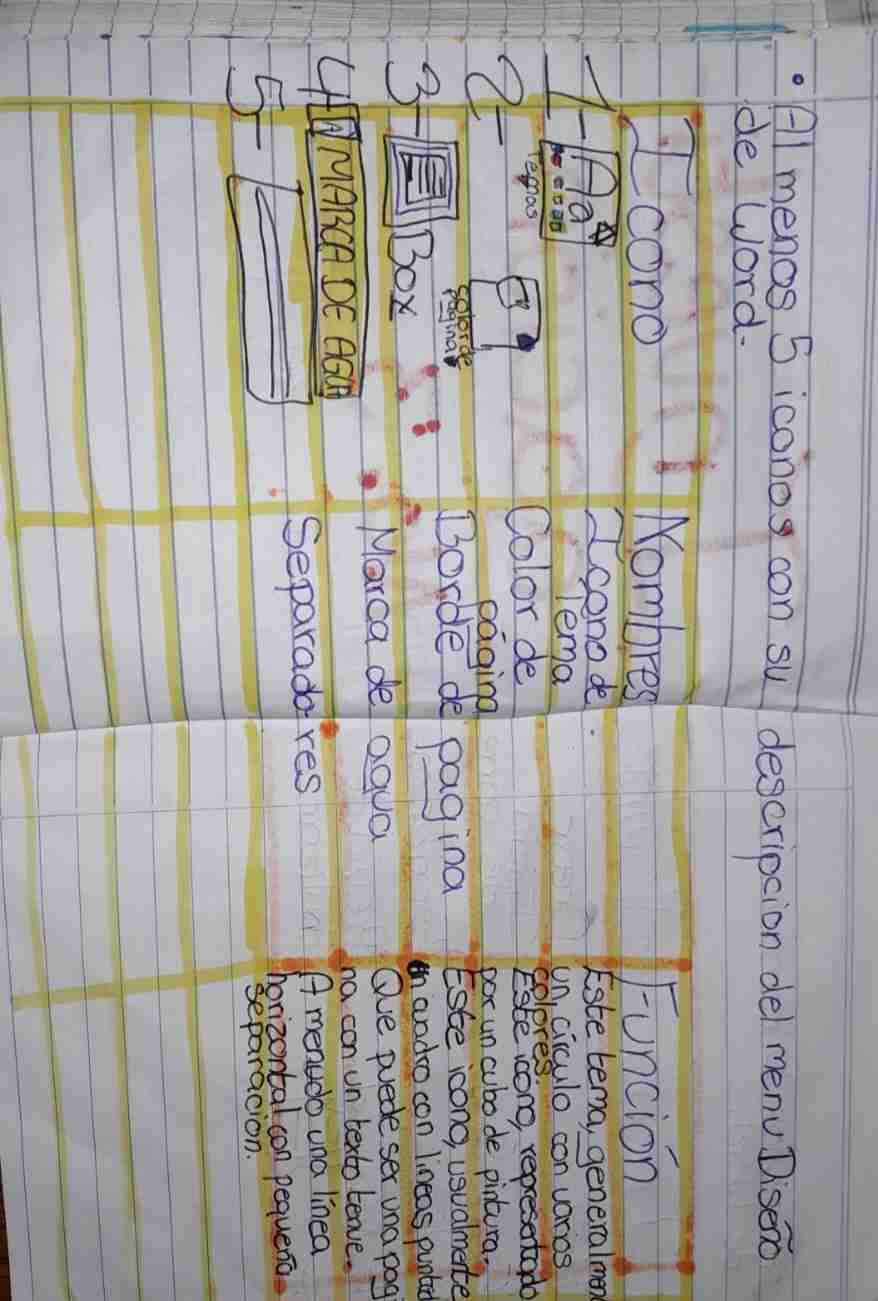 • Al menos 5 iconos con su descripcion del menu Diseño
de Word.
Icono Nombres Función
1- Aa Temas Icono de Tema Este tema, general
un círculo con varios
colores.
2- color de pagina Color de página Este icono, representado
por un cubo de pintura.
3- Box Borde de pagina Este icono, usualmente
un cuadro con lineas
4- A MARCA DE AGUA Marca de agua Que puede ser una pag
na con un texto tenue.
5- Separadores A menudo una línea
horizontal con pequeña
separacion.